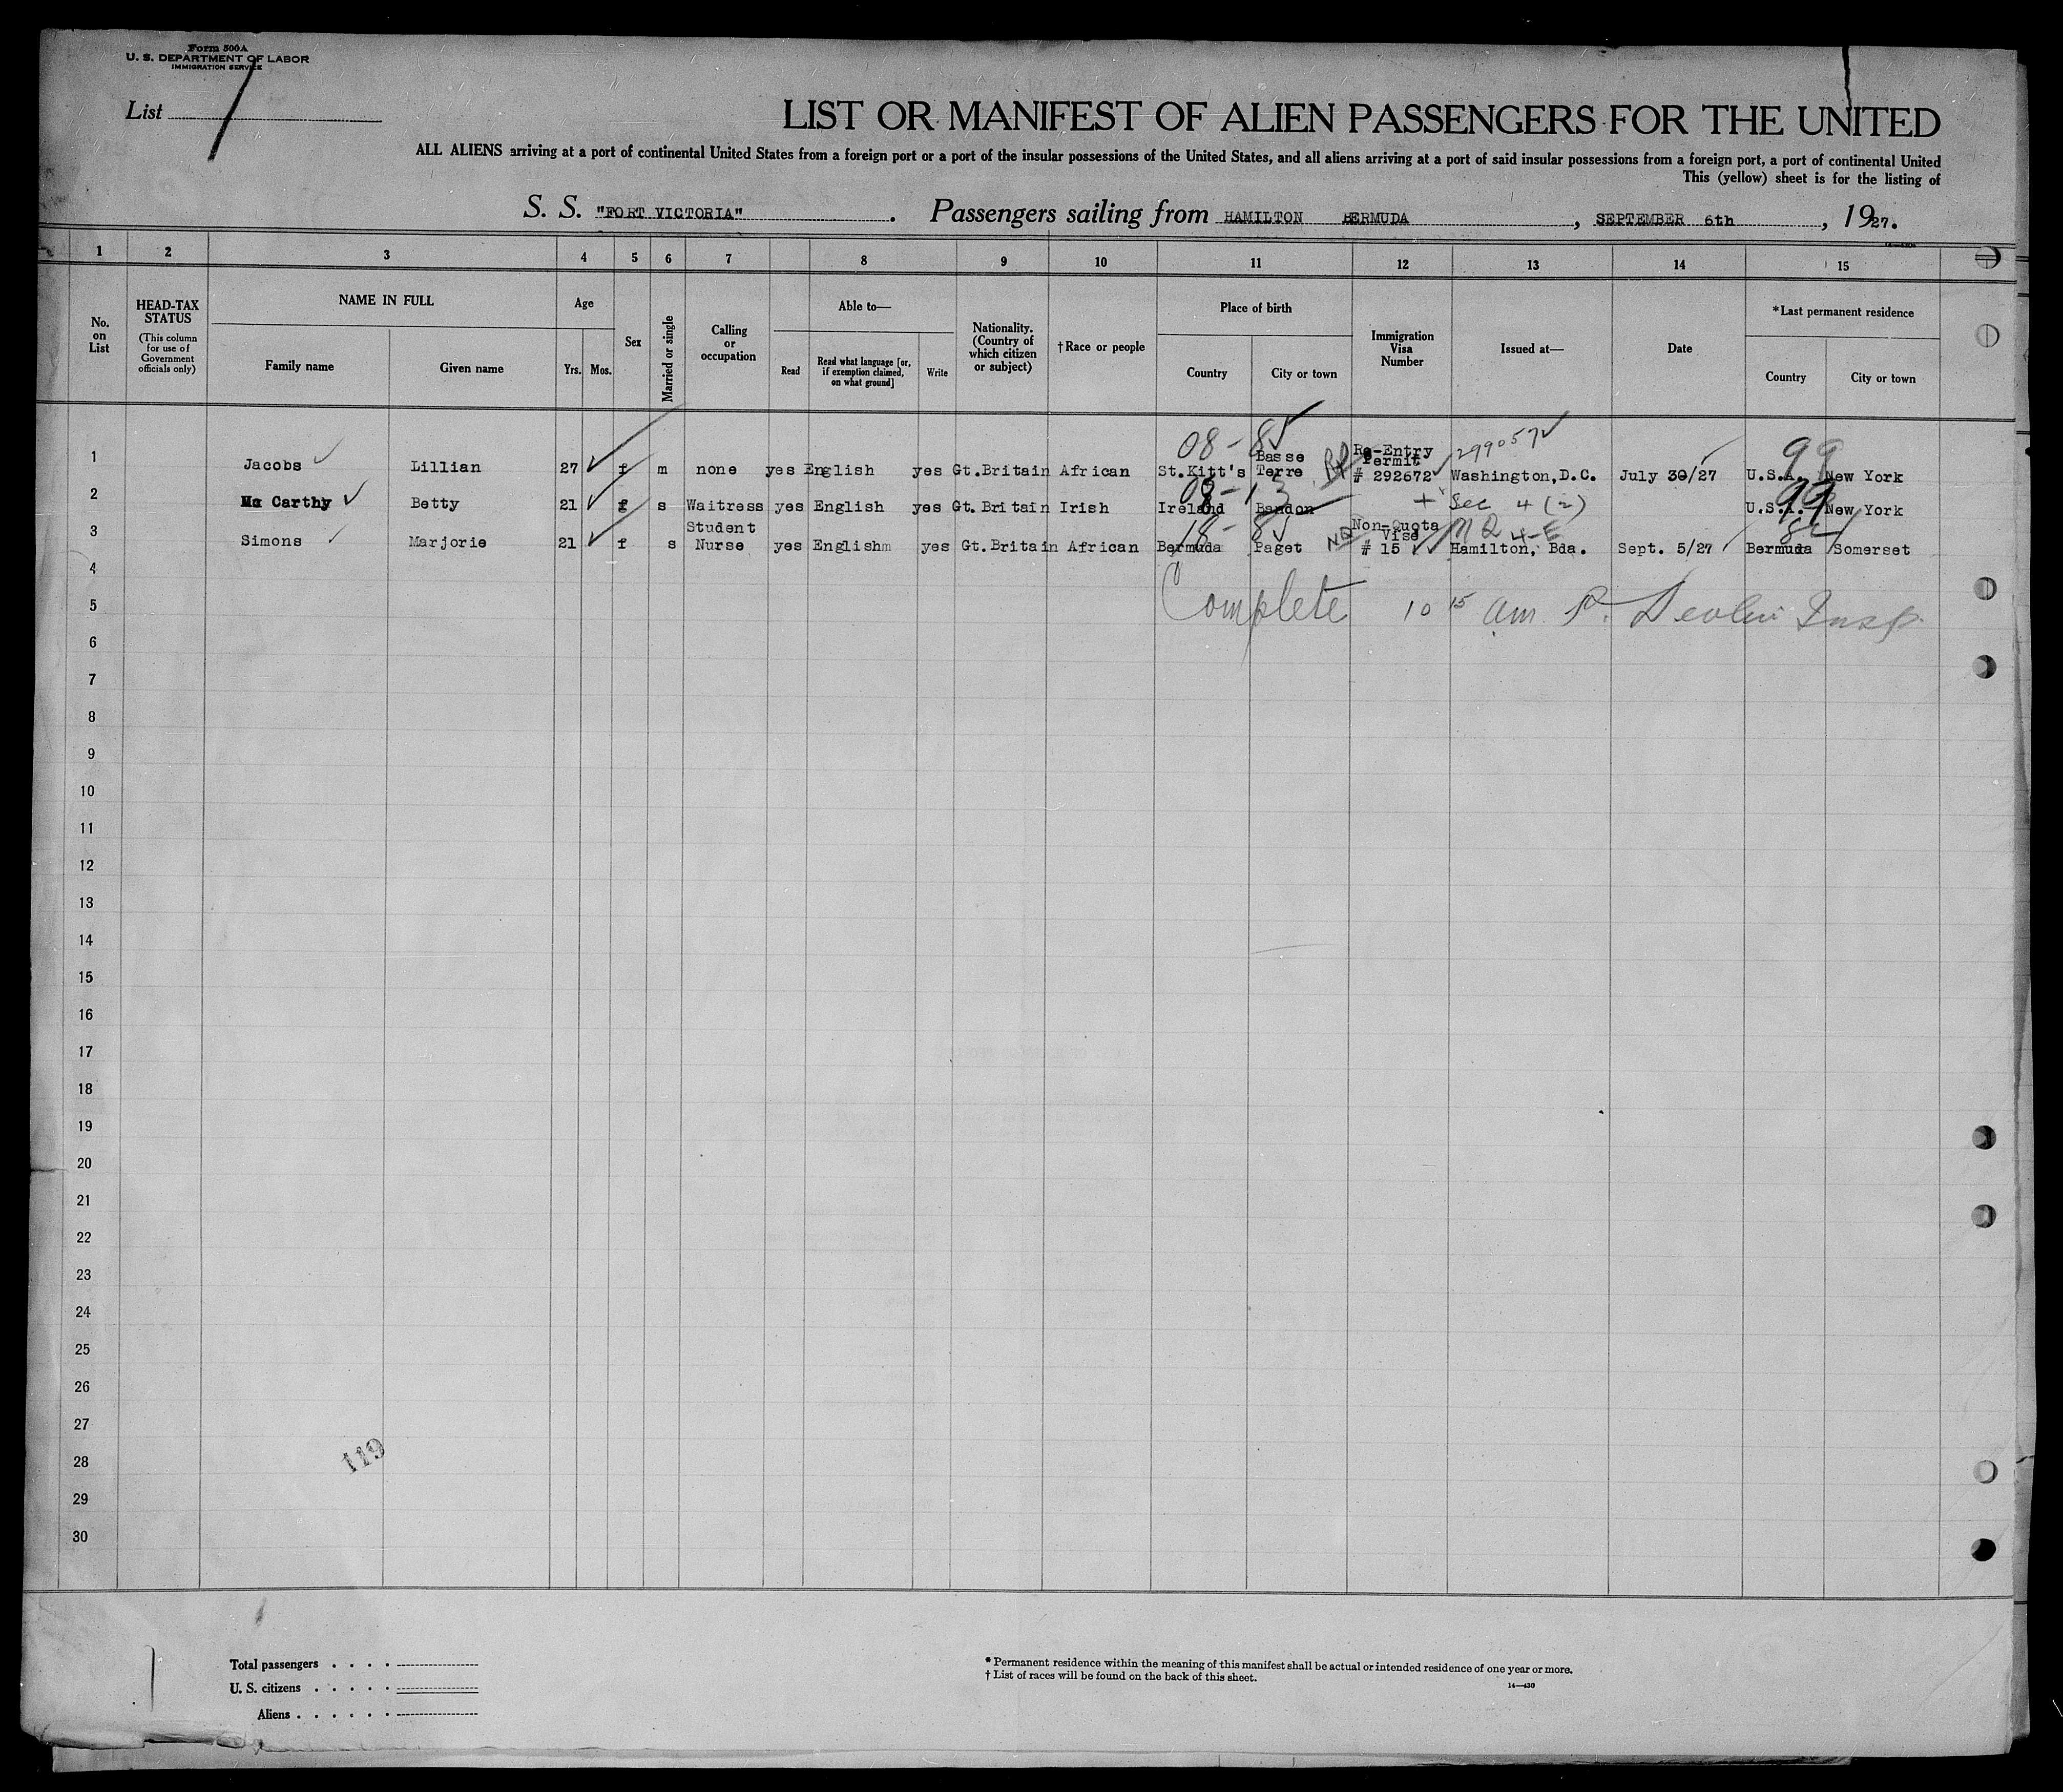 Form 500A
U. S. DEPARTMENT OF LABOR
IMMIGRATION SERVICE
List
LIST OR MANIFEST OF ALIEN PASSENGERS FOR THE UNITED
ALL ALIENS arriving at a port of continental United States from a foreign port or a port of the insular possessions of the United States, and all aliens arriving at a port of said insular possessions from a foreign port, a port of continental United
This (yellow) sheet is for the listing of
S. S. "FORT VICTORIA" . Passengers sailing from HAMILTON BERMUDA , SEPTEMBER 6th , 1927.
1 2 3 4 5 6 7 8 9 10 11 12 13 14 15
No. on List
HEAD-TAX STATUS
(This column for use of Government officials only)
NAME IN FULL
Family name Given name
Age
Yrs. Mos.
Sex
Married or single
Calling or occupation
Able to—
Read
Read what language [or, if exemption claimed, on what ground]
Write
Nationality. (Country of which citizen or subject)
†Race or people
Place of birth
Country City or town
Immigration Visa Number
Issued at—
Date
*Last permanent residence
Country City or town
08-8 299057 99
1 Jacobs Lillian 27 f m none yes English yes Gt.Britain African St.Kitt's Basse Terre RP Re-Entry Permit # 292672 Washington,D.C. July 30/27 U.S.A. New York
08-13 99
2 Mc Carthy Betty 21 f s Waitress yes English yes Gt. Britain Irish Ireland Bandon + Sec 4 (2) U.S.A. New York
18-8 NQ 4-E
3 Simons Marjorie 21 f s Student Nurse yes Englishm yes Gt.Britain African Bermuda Paget NQ Non-Quota Vise # 15 Hamilton, Bda. Sept. 5/27 Bermuda Somerset
4
5 Complete 10 15 am P. Devlin Insp.
6
7
8
9
10
11
12
13
14
15
16
17
18
19
20
21
22
23
24
25
26
27
28
119
29
30
Total passengers . . . .
U. S. citizens . . . . .
Aliens . . . . . .
* Permanent residence within the meaning of this manifest shall be actual or intended residence of one year or more.
† List of races will be found on the back of this sheet.
14—430